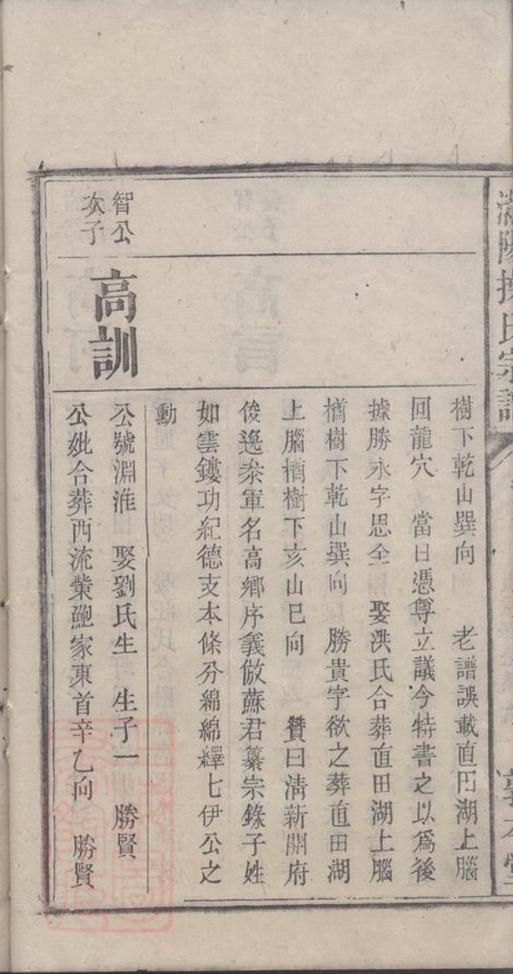 樹下乾山巽向　老譜誤載直田湖上腦
回龍穴　當日憑尊立議今特書之以爲後
據勝永字思全　娶洪氏合葬直田湖上腦
樹下乾山巽向　勝貴字欲之葬直田湖
上腦樹下亥山巳向　贊曰清新開府
俊逸叅軍名高鄉序義倣蘇君纂宗錄子姓
如雲鏤功紀德支本條分綿綿繹七伊公之
勳
智公
次子
高訓
公號淵淮　娶劉氏生　生子一　勝賢
公妣合葬西流業鮑家東首辛乙向　勝賢
氏宗譜